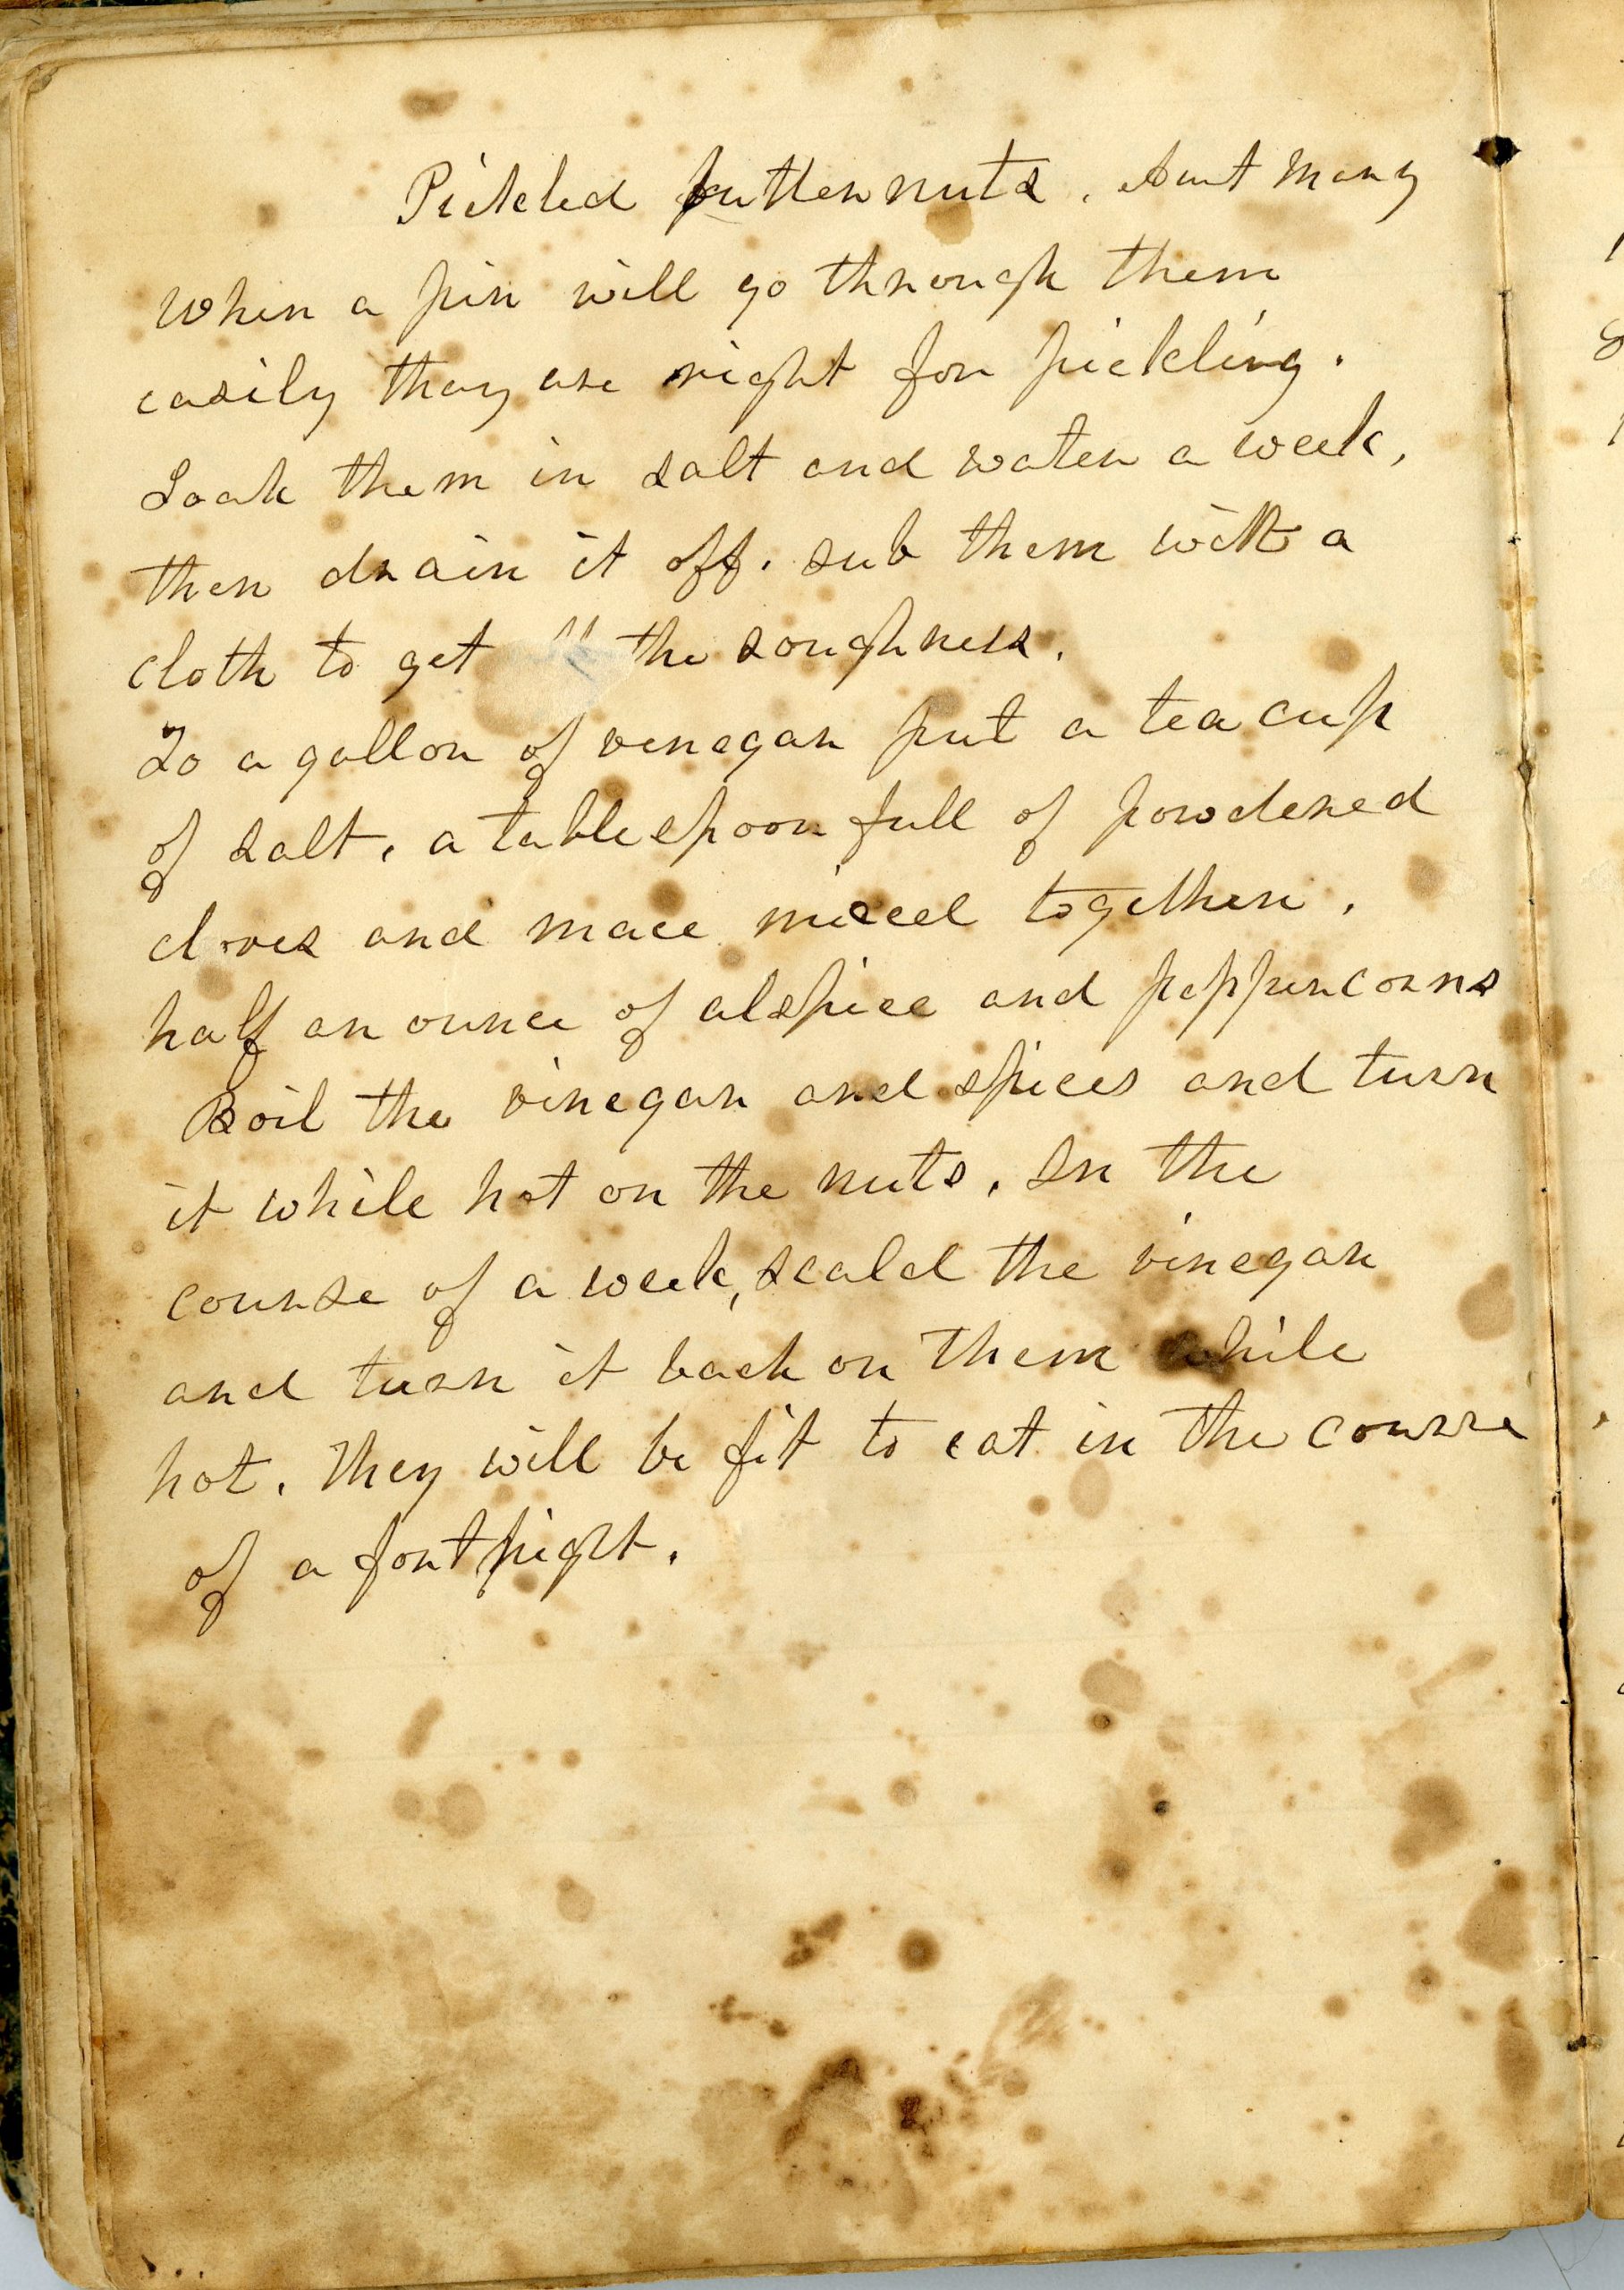 Pickled butternuts. Aunt Mary
When a pin will go through them
easily they are right for pickling.
Soak them in salt and water a week,
then drain it off. rub them with a
cloth to get the roughness.
To a gallon of vinegar put a tea cup
of salt, a tablespoon full of powdered
cloves and mace mixed together.
half an ounce of alspice and peppercorns
Boil the vinegar and spices and turn
it while hot on the nuts. In the
course of a week, scald the vinegar
and turn it back on them while
hot. They will be fit to eat in the course
of a fortnight.